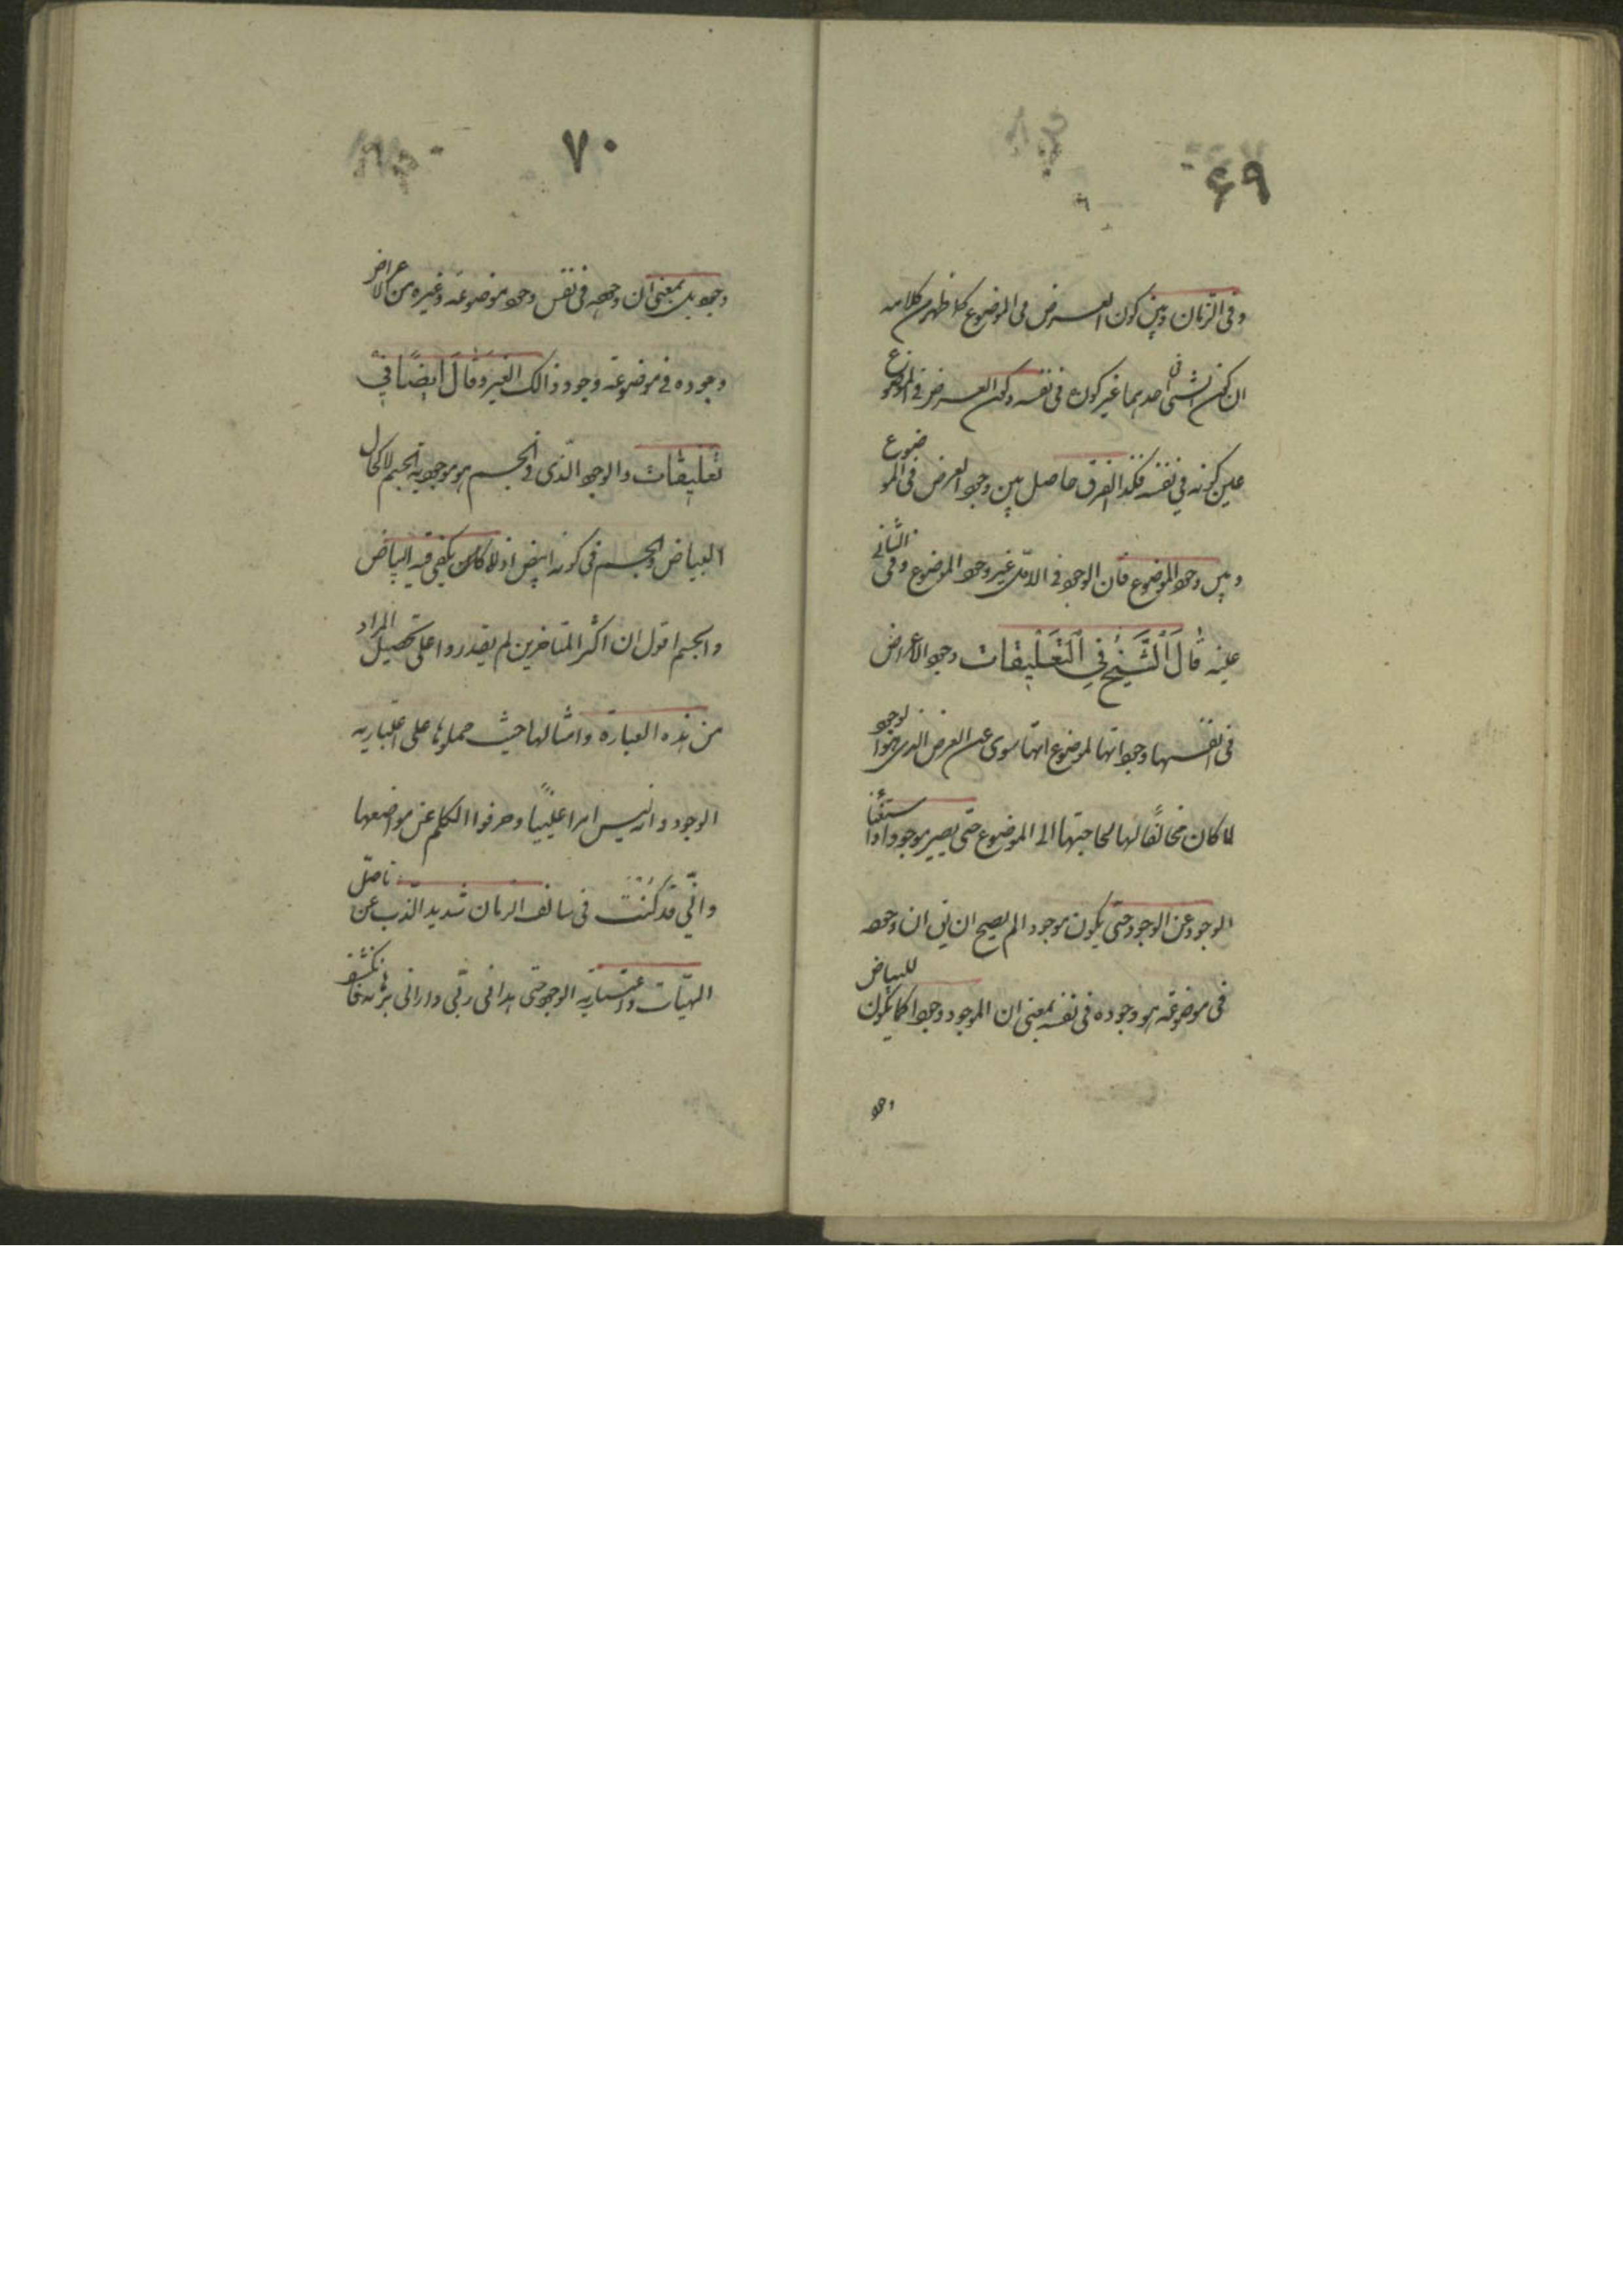 ۶۹
وفی الزمان وبین کون العرض فی الموضوع کما ظهر من کلامه
ان کون الشئ فی احدهما غیر کونه فی نفسه وکون العرض فی الموضوع
عین کونه فی نفسه فکذا الفرق حاصل بین وجود العرض فی الموضوع
وبین وجود الموضوع فان الوجود فی الاول غیر وجود الموضوع وفی الثانی
عینه قَالَ اَلشَّیْخُ فِی اَلتَّعْلِیقَات وجود الاعراض
فی انفسها وجوداتها لموضوعاتها سوی عن العرض الذی هو الوجود
لما کان مخالفًا لها لحاجتها الی الموضوع حتی یصیر موجودا واستغناء
الوجود عن الوجود حتی یکون موجودا لم یصح ان یق ان وجوده
فی موضوعه هو وجوده فی نفسه بمعنی ان الموجود وجودا کما یکون للبیاض
وجود
۷۰
وجود بل بمعنی ان وجوده فی نفس وجود موضوعه وغیره من الاعراض
وجوده فی موضوعه وجود ذالک الغیر وَقَالَ اَیضًا فی
تعلیقات والوجود الذی فی الجسم هو موجودیة الجسم لا کحال
البیاض والجسم فی کونه ابیض اذ لا یکفی فیه البیاض
والجسم اقول ان اکثر المتاخرین لم یقدروا علی تحصیل المراد
من هذه العبارة وامثالها حیث حملوها علی اعتباریه
الوجود وانه لیس امرا عینیًا وحرفوا الکلم عن مواضعها
وانّی قَد کُنْتُ فی سالف الزمان شدید الذب عن تاصّل
المهیّات واعتباریة الوجود حتی هدانی ربّی وارانی برهانه فانکشف